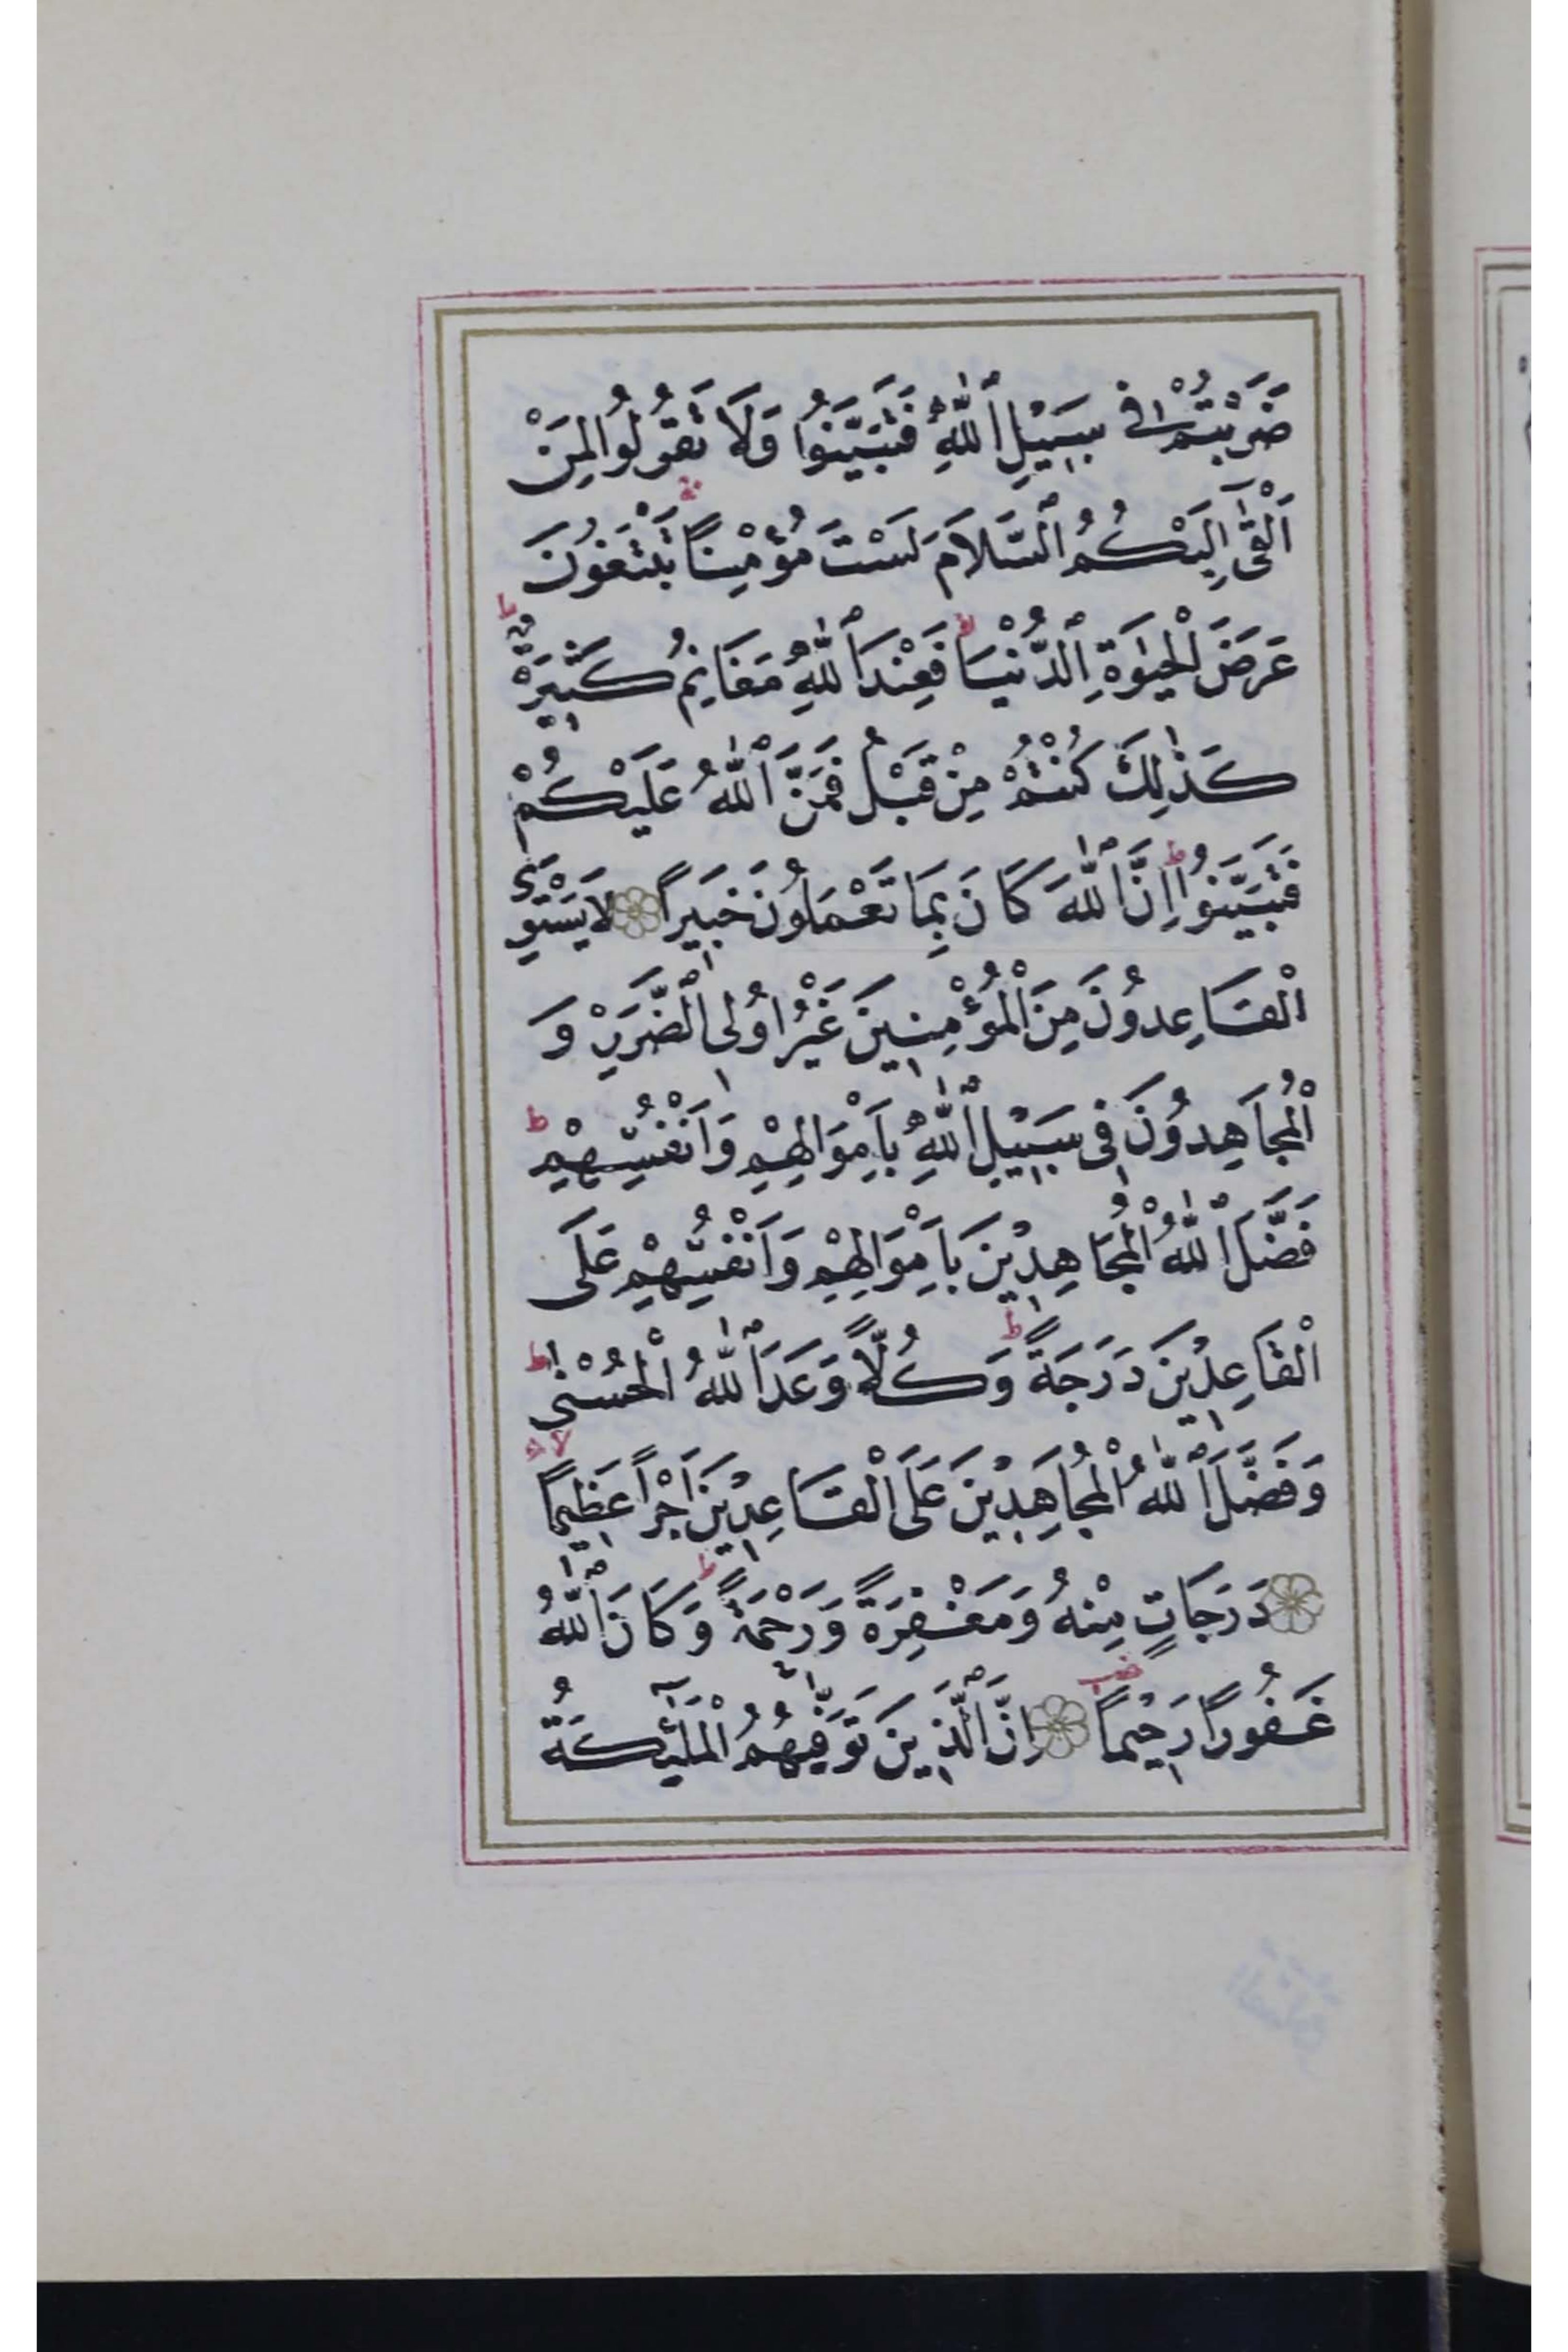 ضَرَبْتُمْ فٖى سَبٖيلِ ٱللّٰهِ فَتَبَيَّنُوا وَلَا تَقُولُوا لِمَنْ
اَلْقٰٓى اِلَيْكُمُ ٱلسَّلَامَ لَسْتَ مُؤْمِنًا تَبْتَغُونَ
عَرَضَ الْحَيٰوةِ ٱلدُّنْيَا فَعِنْدَ ٱللّٰهِ مَغَانِمُ كَثٖيرَةٌ
كَذٰلِكَ كُنْتُمْ مِنْ قَبْلُ فَمَنَّ ٱللّٰهُ عَلَيْكُمْ
فَتَبَيَّنُوا اِنَّ ٱللّٰهَ كَانَ بِمَا تَعْمَلُونَ خَبٖيرًا لَا يَسْتَوِى
الْقَاعِدُونَ مِنَ الْمُؤْمِنٖينَ غَيْرُ اُولِى ٱلضَّرَرِ وَ
الْمُجَاهِدُونَ فٖى سَبٖيلِ ٱللّٰهِ بِاَمْوَالِهِمْ وَاَنْفُسِهِمْ
فَضَّلَ ٱللّٰهُ الْمُجَاهِدٖينَ بِاَمْوَالِهِمْ وَاَنْفُسِهِمْ عَلَى
الْقَاعِدٖينَ دَرَجَةً وَكُلًّا وَعَدَ ٱللّٰهُ الْحُسْنٰى
وَفَضَّلَ ٱللّٰهُ الْمُجَاهِدٖينَ عَلَى الْقَاعِدٖينَ اَجْرًا عَظٖيمًا
دَرَجَاتٍ مِنْهُ وَمَغْفِرَةً وَرَحْمَةً وَكَانَ ٱللّٰهُ
غَفُورًا رَحٖيمًا اِنَّ ٱلَّذٖينَ تَوَفّٰيهُمُ الْمَلٰٓئِكَةُ